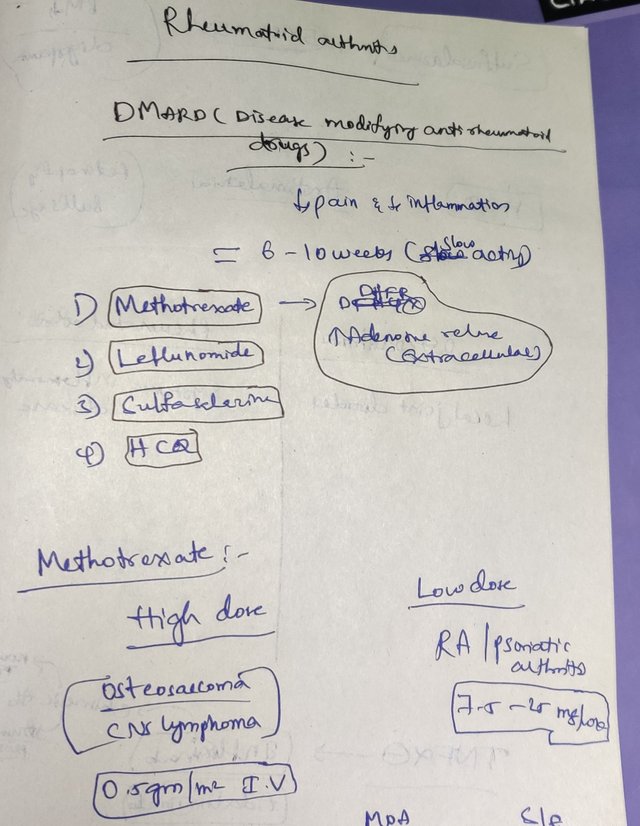 Rheumatoid arthritis
DMARD (Disease modifying anti rheumatoid
drugs) :-
↓ pain & ↓ inflammation
= 6 - 10 weeks (Slow acting)
1) Methotrexate → DHFR
↑ Adenosine
(extracellular)
2) Leflunomide
3) Sulfasalazine
4) HCQ
Methotrexate :-
High dose
Low dose
Osteosarcoma
CNS lymphoma
RA / psoriatic
arthritis
0.5gm/m² I.V
7.5 - 25
MOA
S/E